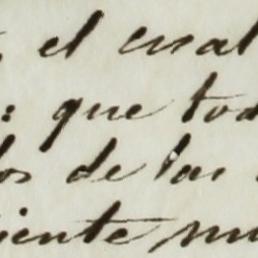 , el cual
: que tod
los de las
iente mu